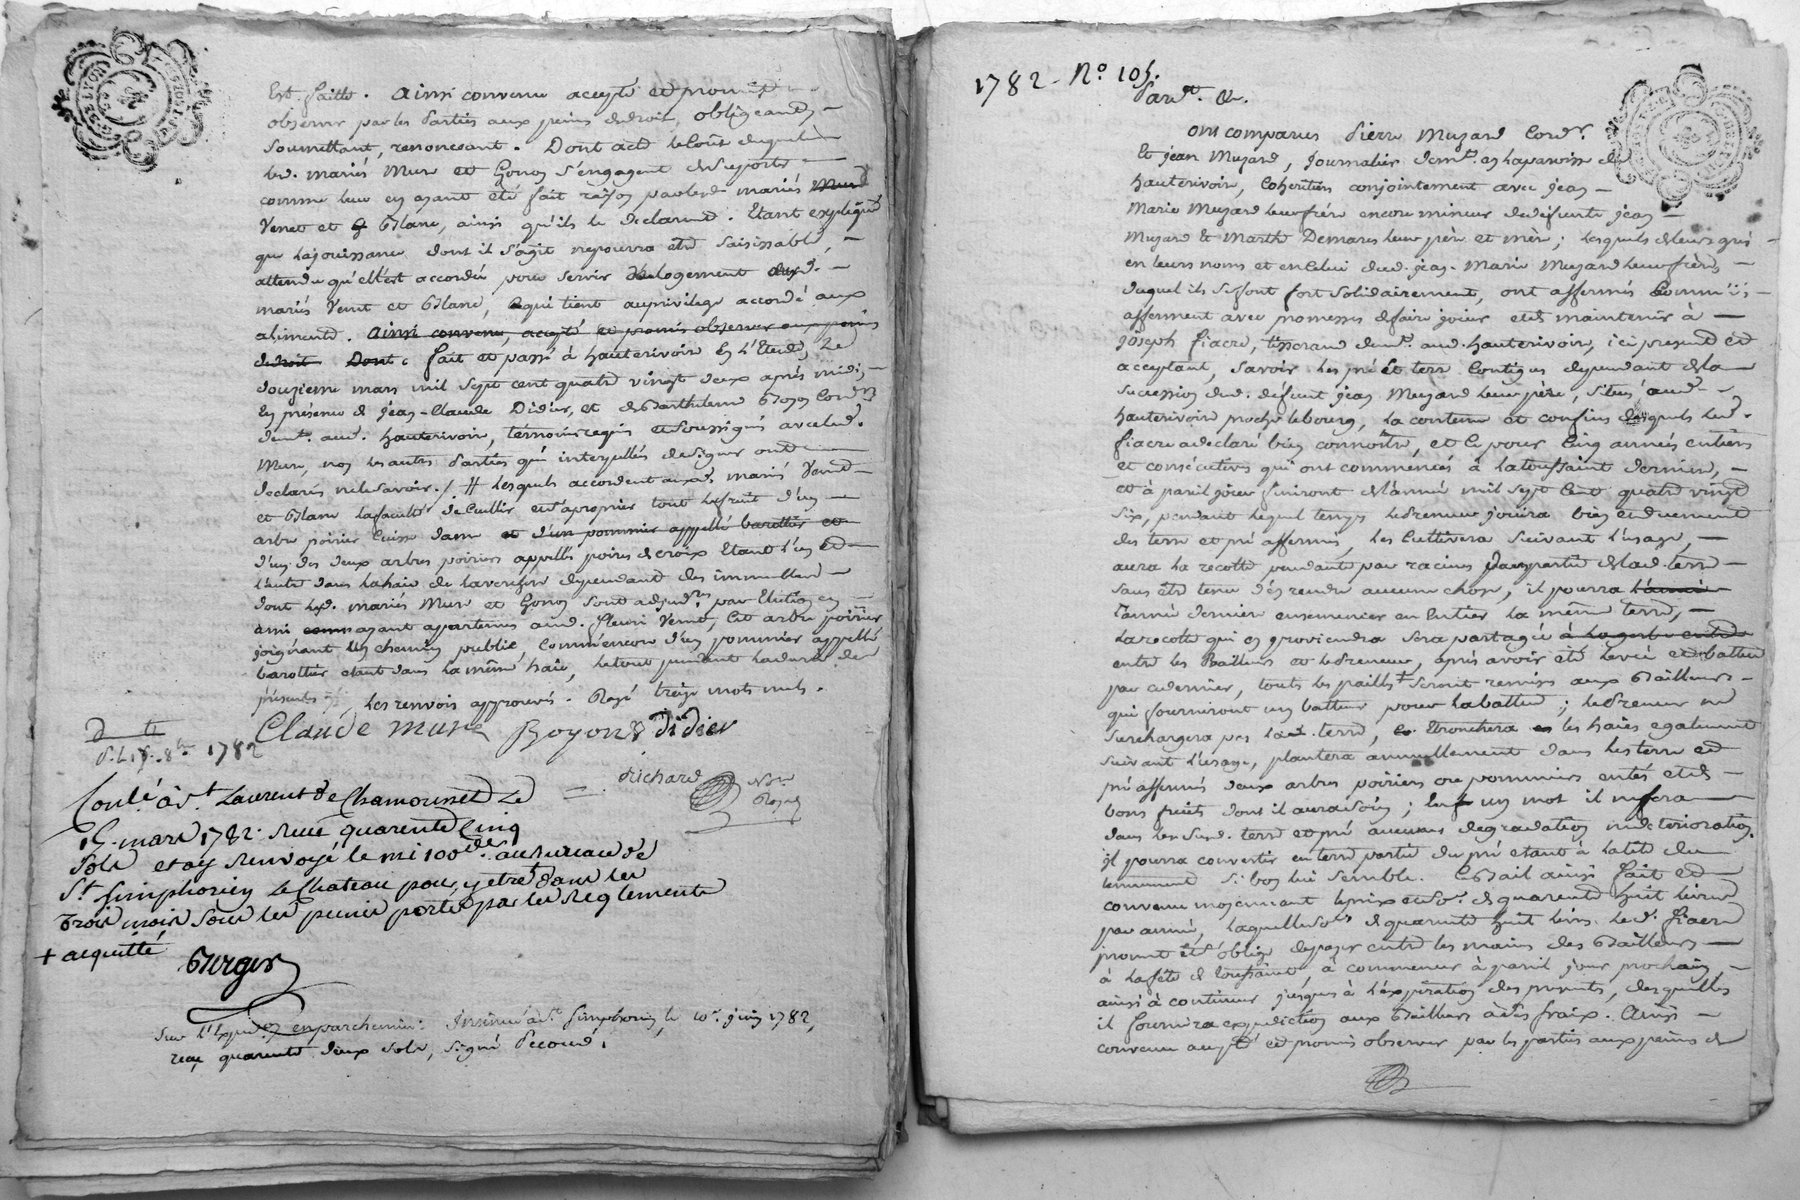 Est faitte. Ainsi convenu accepté et promis
observer par les Parties aux peines de droit, obligeand
soumettant, renonceant. Dont acte le coût duquel
led. mariés Mure et Gonon s'engagent de suporter
comme leur en ayant été fait raison par lesd. mariés Mure
Venet et Blanc, ainsi qu'ils le declarend. Etant expliqué
que la jouissance dont il s'agit ne pourra être saisissable,
attendu qu'elle est accordée pour servir de logement auxd.
mariés Venet et Blanc, qui tient au privilege accordé aux
aliments. Ainsi convenu, accepté et promis observer aux peines
de droit Dont c fait et passé à hauterivoire En l'Etude, Le
douzieme mars mil sept cent quatre vingt deux après midi,
En présence de jean-Claude Didier, et de Barthelemi Boyon Cord.rs
demt. aud. hauterivoire, témoins requis et soussignés avec led.
Mure, non les autres Parties qui interpellés de signer ont
declarés ne le savoir. / # Lesquels accordent auxd. mariés Venet
et Blanc la faculté de Cuillir et s'aproprier tout le fruit d'un
arbre poirier Cuisse dame et d'un pommier appellé barottier et
d'un des deux arbres poiriers appellés poires de croix Etant l'un et
l'autre dans la haie de la verchere dependant des immeubles
dont lesd. mariés Mure et Gonon sont adjud.res par Election en
ami ayant apartenus aud. fleuri Venet, Cet arbre poirier
joignant Un chemin public, Comme encore d'un pommier appellé
barottier etant dans la même haie, le tout pendant la durée des
présents #. Les renvois approuvés. Rayé treize mots nuls.
Claude mure Boyon Didier
1782
Richard N.re Royal
Conlé à St. Laurent de Chamousset Le
15. mars 1782. Reçu quarente Cinq
sols et ay renvoyé le mi 100de. au Bureau de
St. Simphorien Le Chateau pour y etre dans les
trois mois sous les peines portées par les Reglements
+ acquitté
Berger
Sur l'Expédon. en parchemin: Insinué à St. Simphorien, le 10e. juin 1782,
reçu quarente deux sols, signé Decoud.
1782 - N.o 105.
Pard.t. &c.
Ont comparus Pierre Muzard Cord.r
Et jean Muzard, journalier demt. en la paroisse de
hauterivoire, Coheritiers conjointement avec jean
Marie Muzard leur frère encore mineur de défunts jean
Muzard & Marthe Demares leur père et mère; lesquels de leurs grés
en leurs noms et en celui dud. jean-Marie Muzard leur frère,
duquel ils se font fort solidairement, ont affermés comme ils
afferment avec promesses de faire jouir et de maintenir à
joseph fiacre, tisserand demt. aud. hauterivoire, ici present et
acceptant, Savoir Les pré et terre Contigus dependant de la
succession dud. défunt jean Muzard leur père, situés aud.
hauterivoire proche le bourg, La contenue et confins desquels led.
fiacre a declaré bien connoître, et Ce pour Cinq années entieres
et consécutives qui ont commencées à la toussaint derniere,
et à pareil jour finiront de l'année mil sept Cent quatre vingt
Six, pendant lequel temps le Preneur jouira bien et duement
des terre et pré affermés, Les Cultivera suivant l'usage,
aura la recolte pendante par racines dans partie de lad. terre
sans être tenu d'en rendre aucune chose, il pourra l'année
l'année derniere ensemencer en Entier la même terre,
la recolte qui en proviendra sera partagée à la gerbe entre
entre les Bailleurs et le Preneur, après avoir été levée et battue
par ce dernier, toutes les pailles seront remises aux Bailleurs
qui fourniront un batteur pour la battre; le Preneur ne
surchargera pas lad. terre, en tronchera les haies egalement
suivant l'usage, plantera annuellement dans les terre et
pré affermés deux arbres poiriers ou pommiers entés et de
bons fruits dont il aura soin; en un mot il ne fera
dans les susd. terre et pré aucunes degradation ni deterioration.
il pourra convertir en terre partie du pré etant à la tête du
tenement si bon lui semble. Ce Bail ainsi fait et
convenu moyennant le prix et so.e de quarente huit livres
par année, laquelle so.e de quarente huit livres led. fiacre
promet et s'oblige de payer entre les mains des Bailleurs
à la fête de toussaint, à commencer à pareil jour prochain,
ainsi à continuer jusques à l'expiration des presents, desquelles
il fournira expedition aux Bailleurs à ses fraix. Ainsi
convenu accepté et promis observer par les parties aux peines de